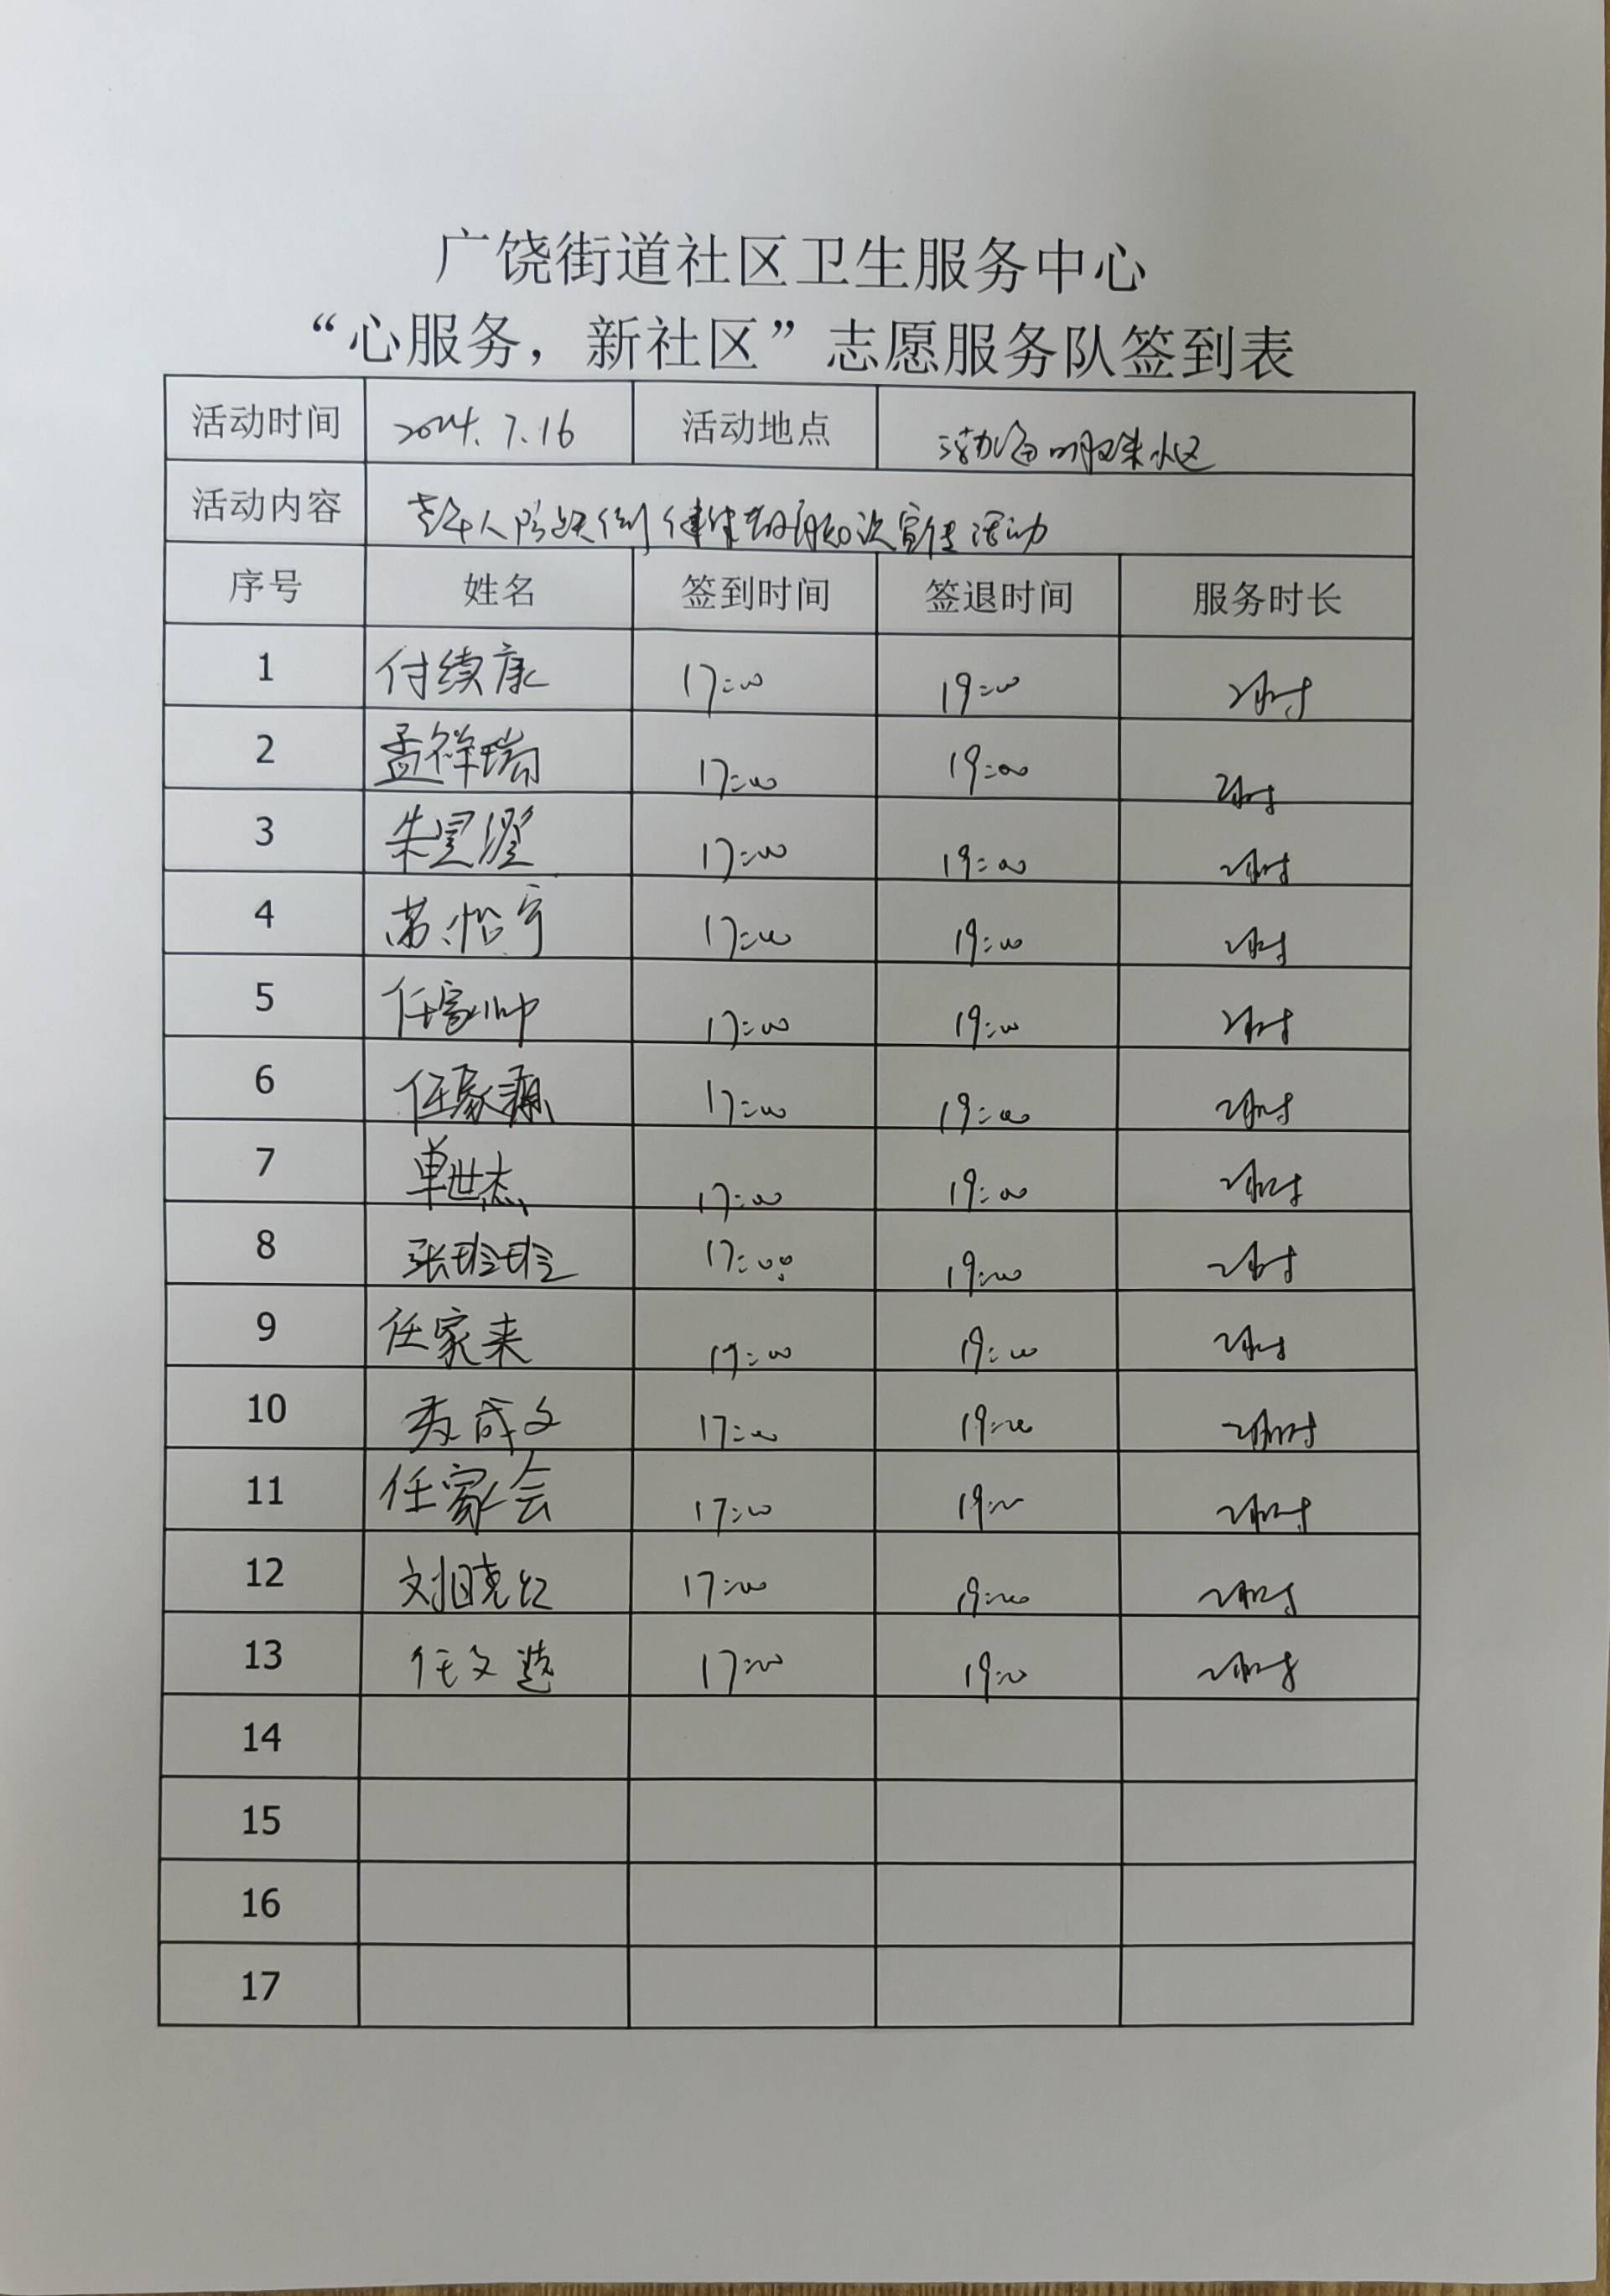 广饶街道社区卫生服务中心
“心服务，新社区”志愿服务队签到表
活动时间 2024.7.16 活动地点 渤海明珠小区
活动内容 老年人防跌倒健康教育知识宣传活动
序号 姓名 签到时间 签退时间 服务时长
1 付续康 17:00 19:00 2小时
2 孟祥瑞 17:00 19:00 2小时
3 朱星澄 17:00 19:00 2小时
4 苏怡宁 17:00 19:00 2小时
5 任家帅 17:00 19:00 2小时
6 任家 17:00 19:00 2小时
7 单世杰 17:00 19:00 2小时
8 张玲玲 17:00 19:00 2小时
9 任家来 17:00 19:00 2小时
10 成文 17:00 19:00 2小时
11 任家会 17:00 19:00 2小时
12 刘晓红 17:00 19:00 2小时
13 任文 17:00 19:00 2小时
14
15
16
17